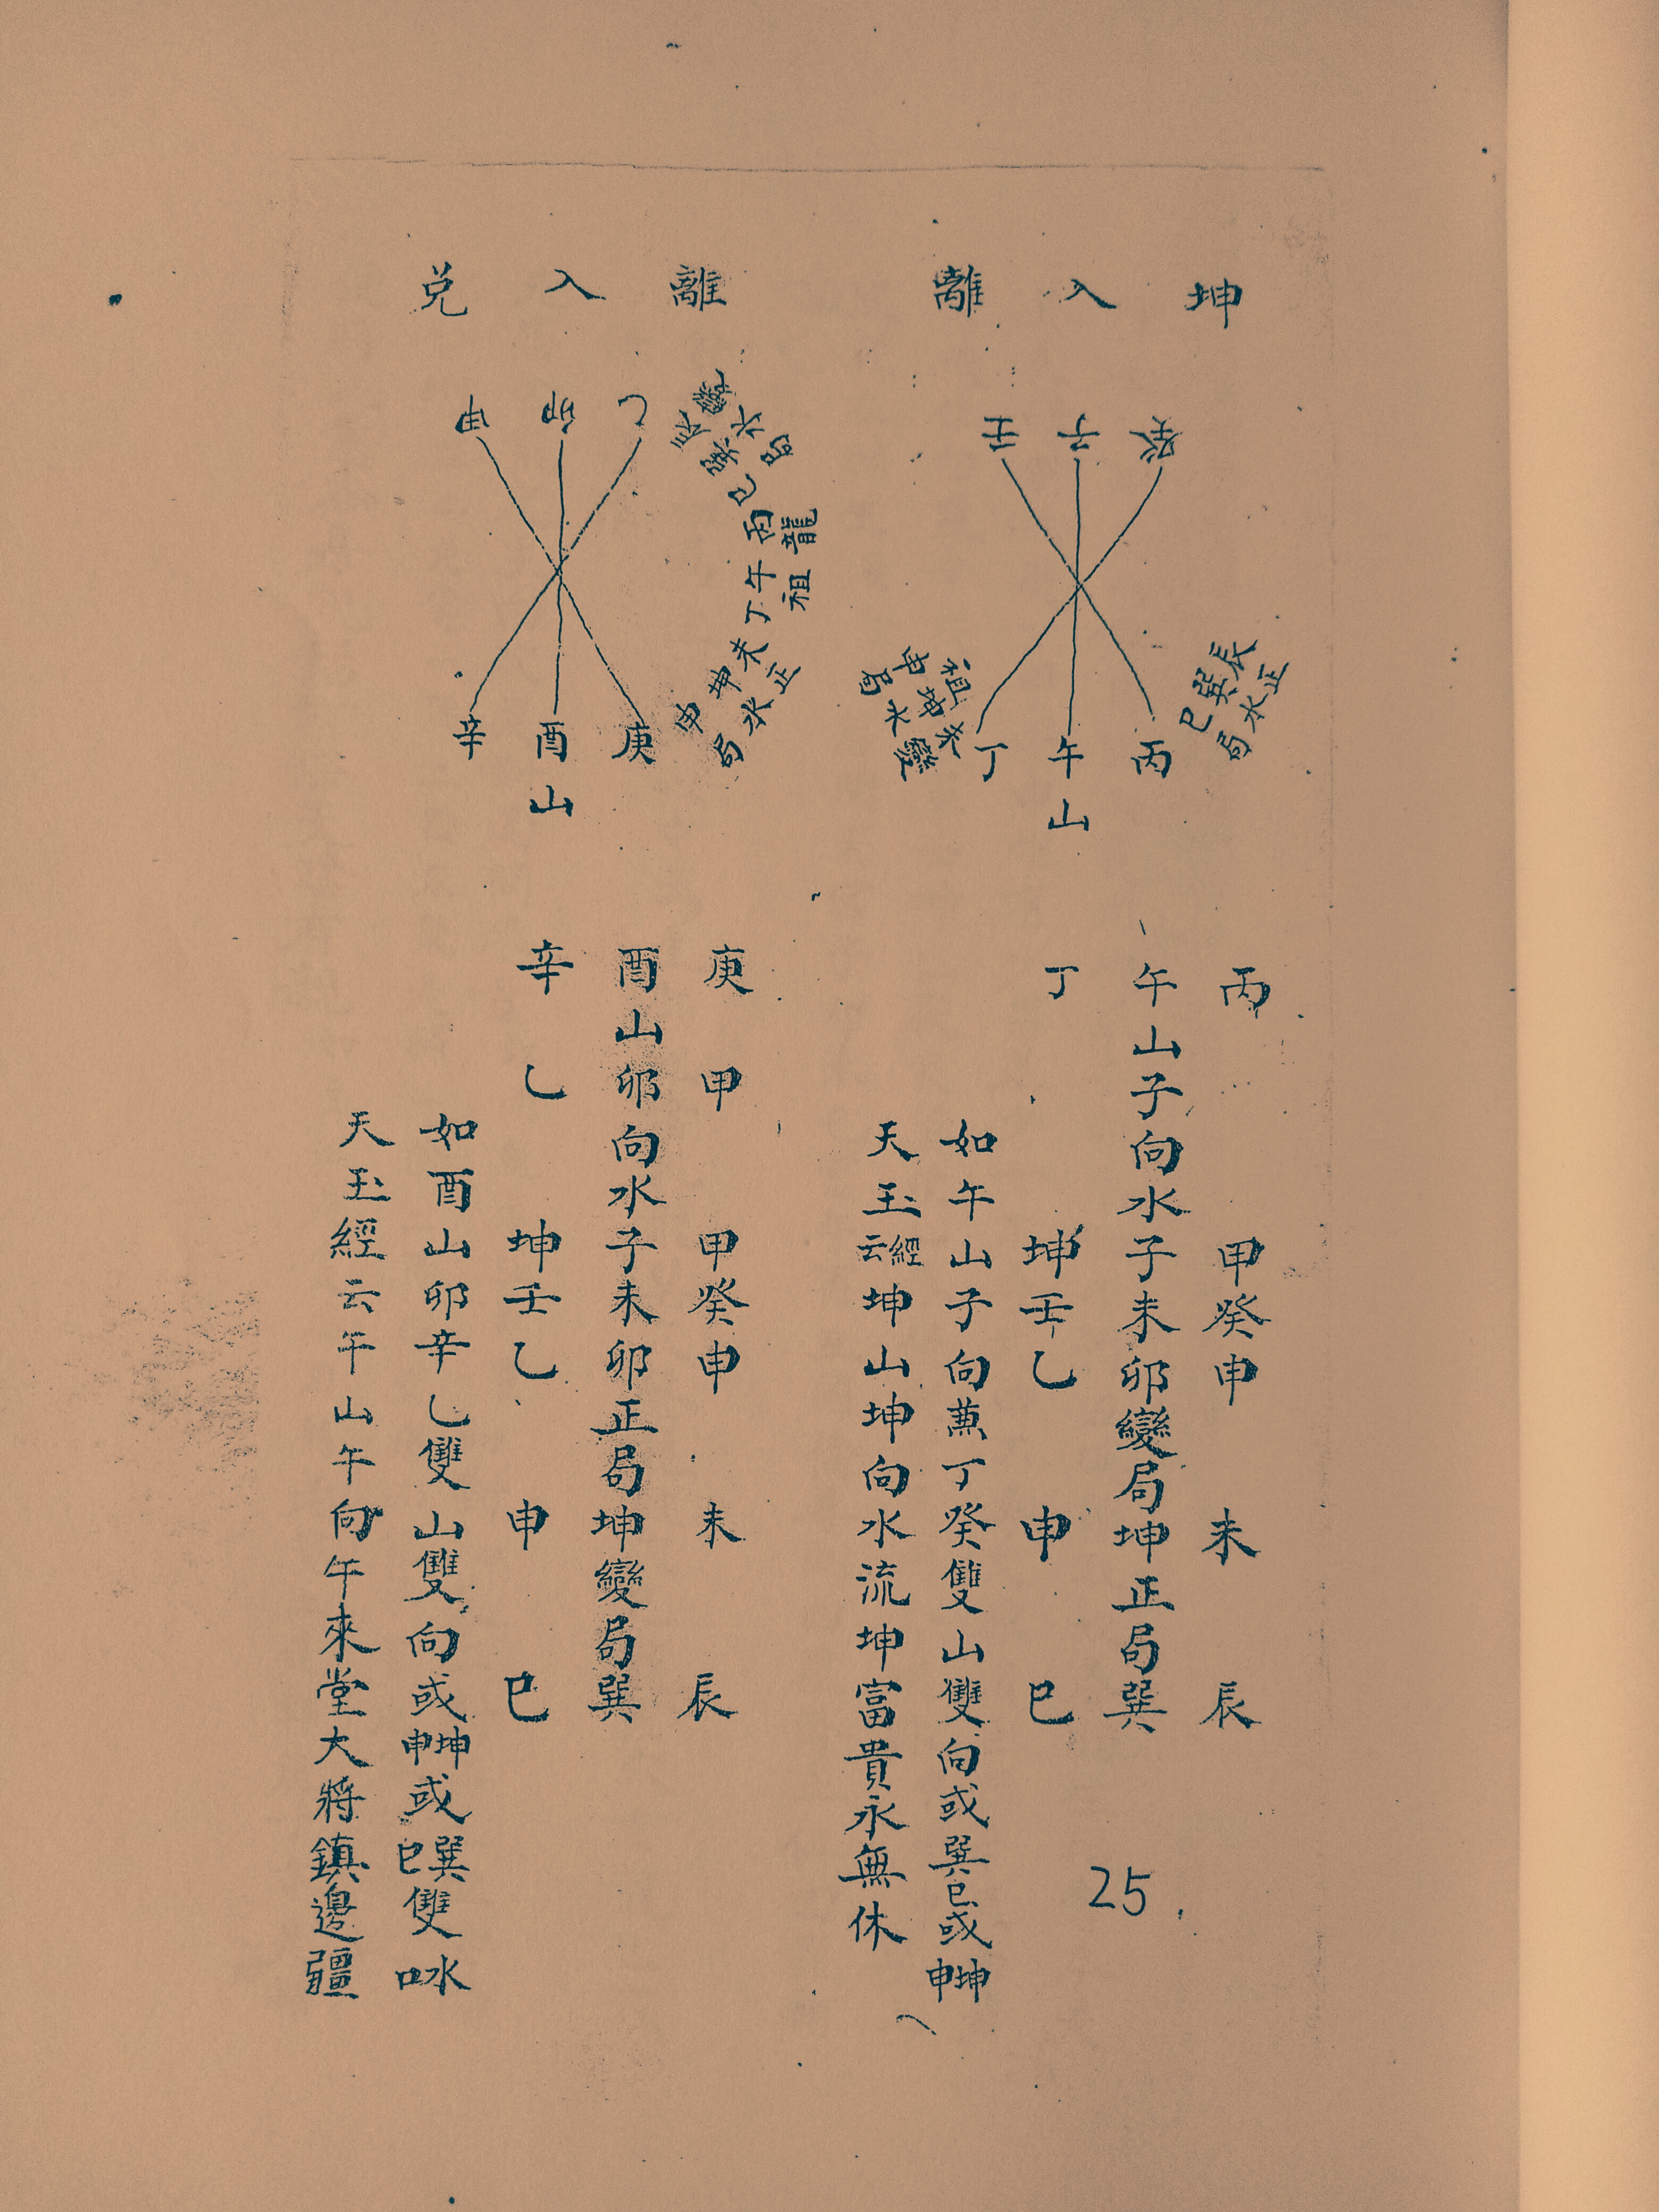 坤入離
癸子壬
辰巽巳
正水局
丙午丁
山
祖
未坤申
變水局
丙　甲癸申　未　辰
午山子向水子未卯變局坤正局巽
丁　坤壬乙　申　巳
如午山子向兼丁癸雙山雙向或巽巳或坤申
天玉經云坤山坤向水流坤富貴永無休
離入兌
乙卯甲
辰巽巳丙午丁未坤申
變水局
龍祖
正水局
庚酉辛
山
庚甲　甲癸申　未　辰
酉山卯向水子未卯正局坤變局巽
辛乙　坤壬乙　申　巳
如酉山卯辛乙雙山雙向或坤申或巽巳雙水口
天玉經云午山午向午來堂大將鎮邊疆
25